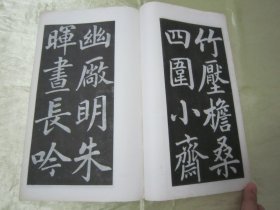 竹壓檐桑
四圍小齋
幽厰明朱
暉晝長吟